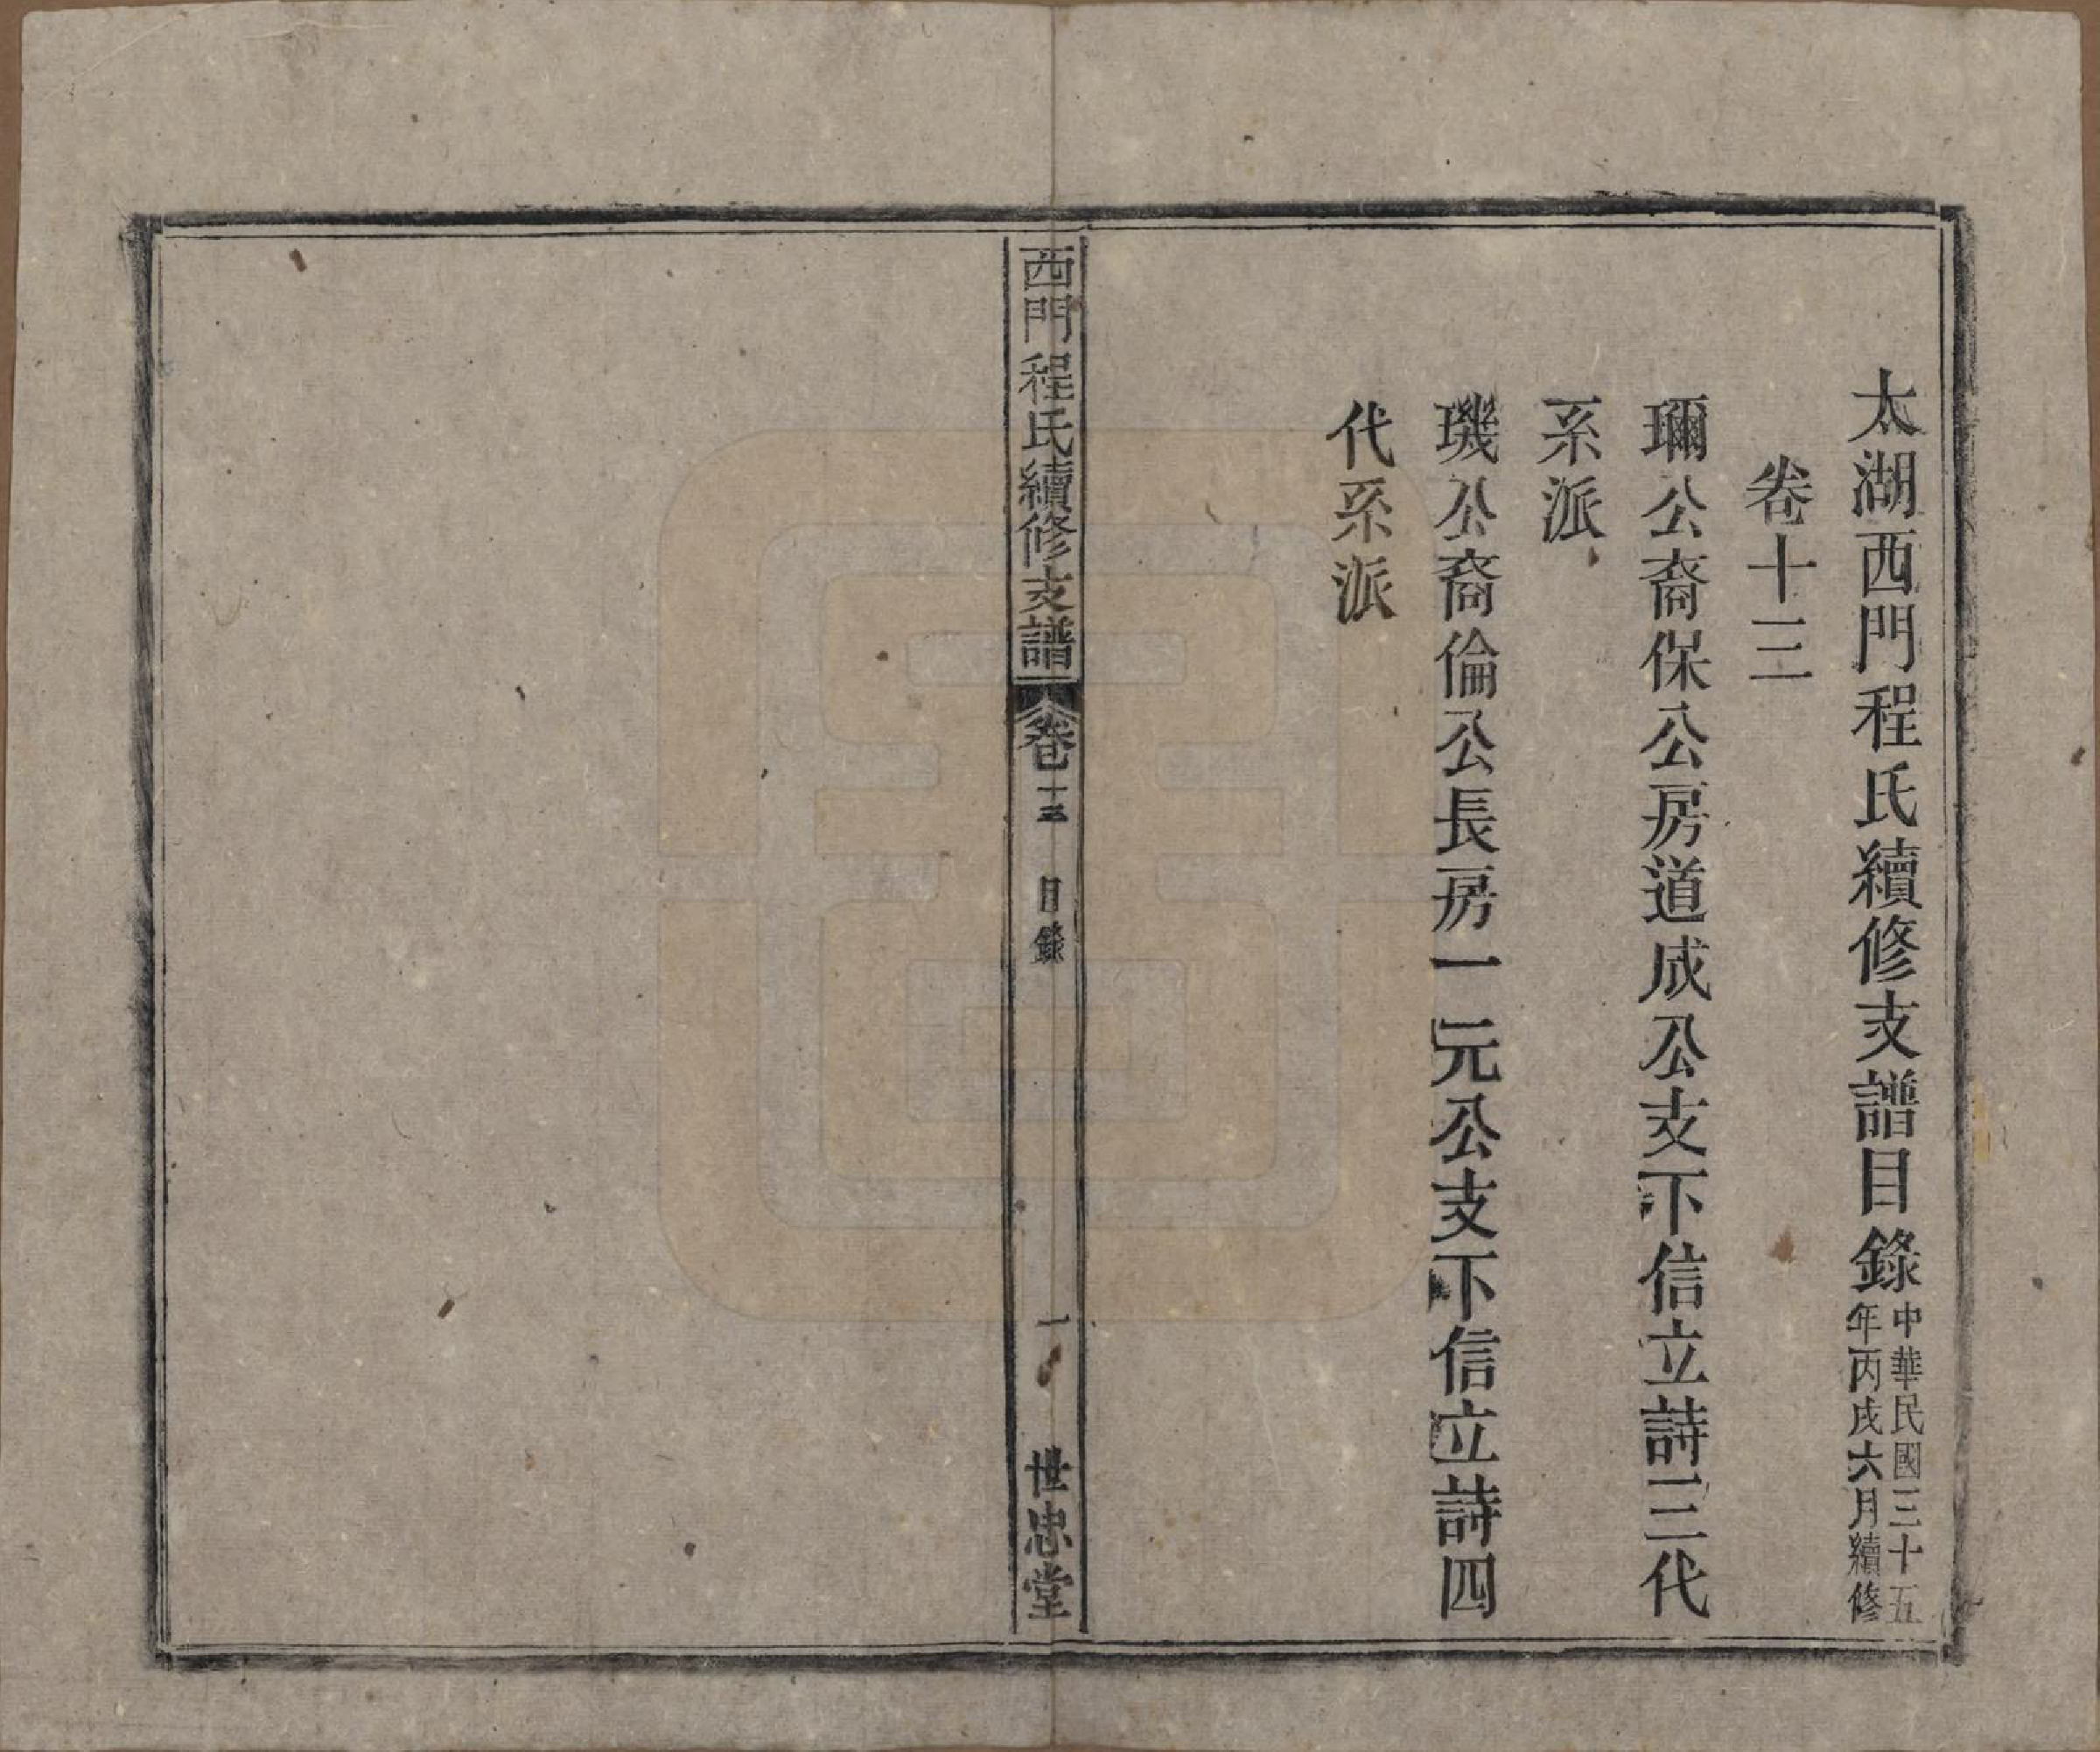 太湖西門程氏續修支譜目錄
中華民國三十五
年丙戌六月續修
卷十三
璊公裔保公房道成公支下信立詩三代
系派
璣公裔倫公長房一元公支下信立詩四
代系派
西門程氏續修支譜 卷十三 目錄 一 世忠堂